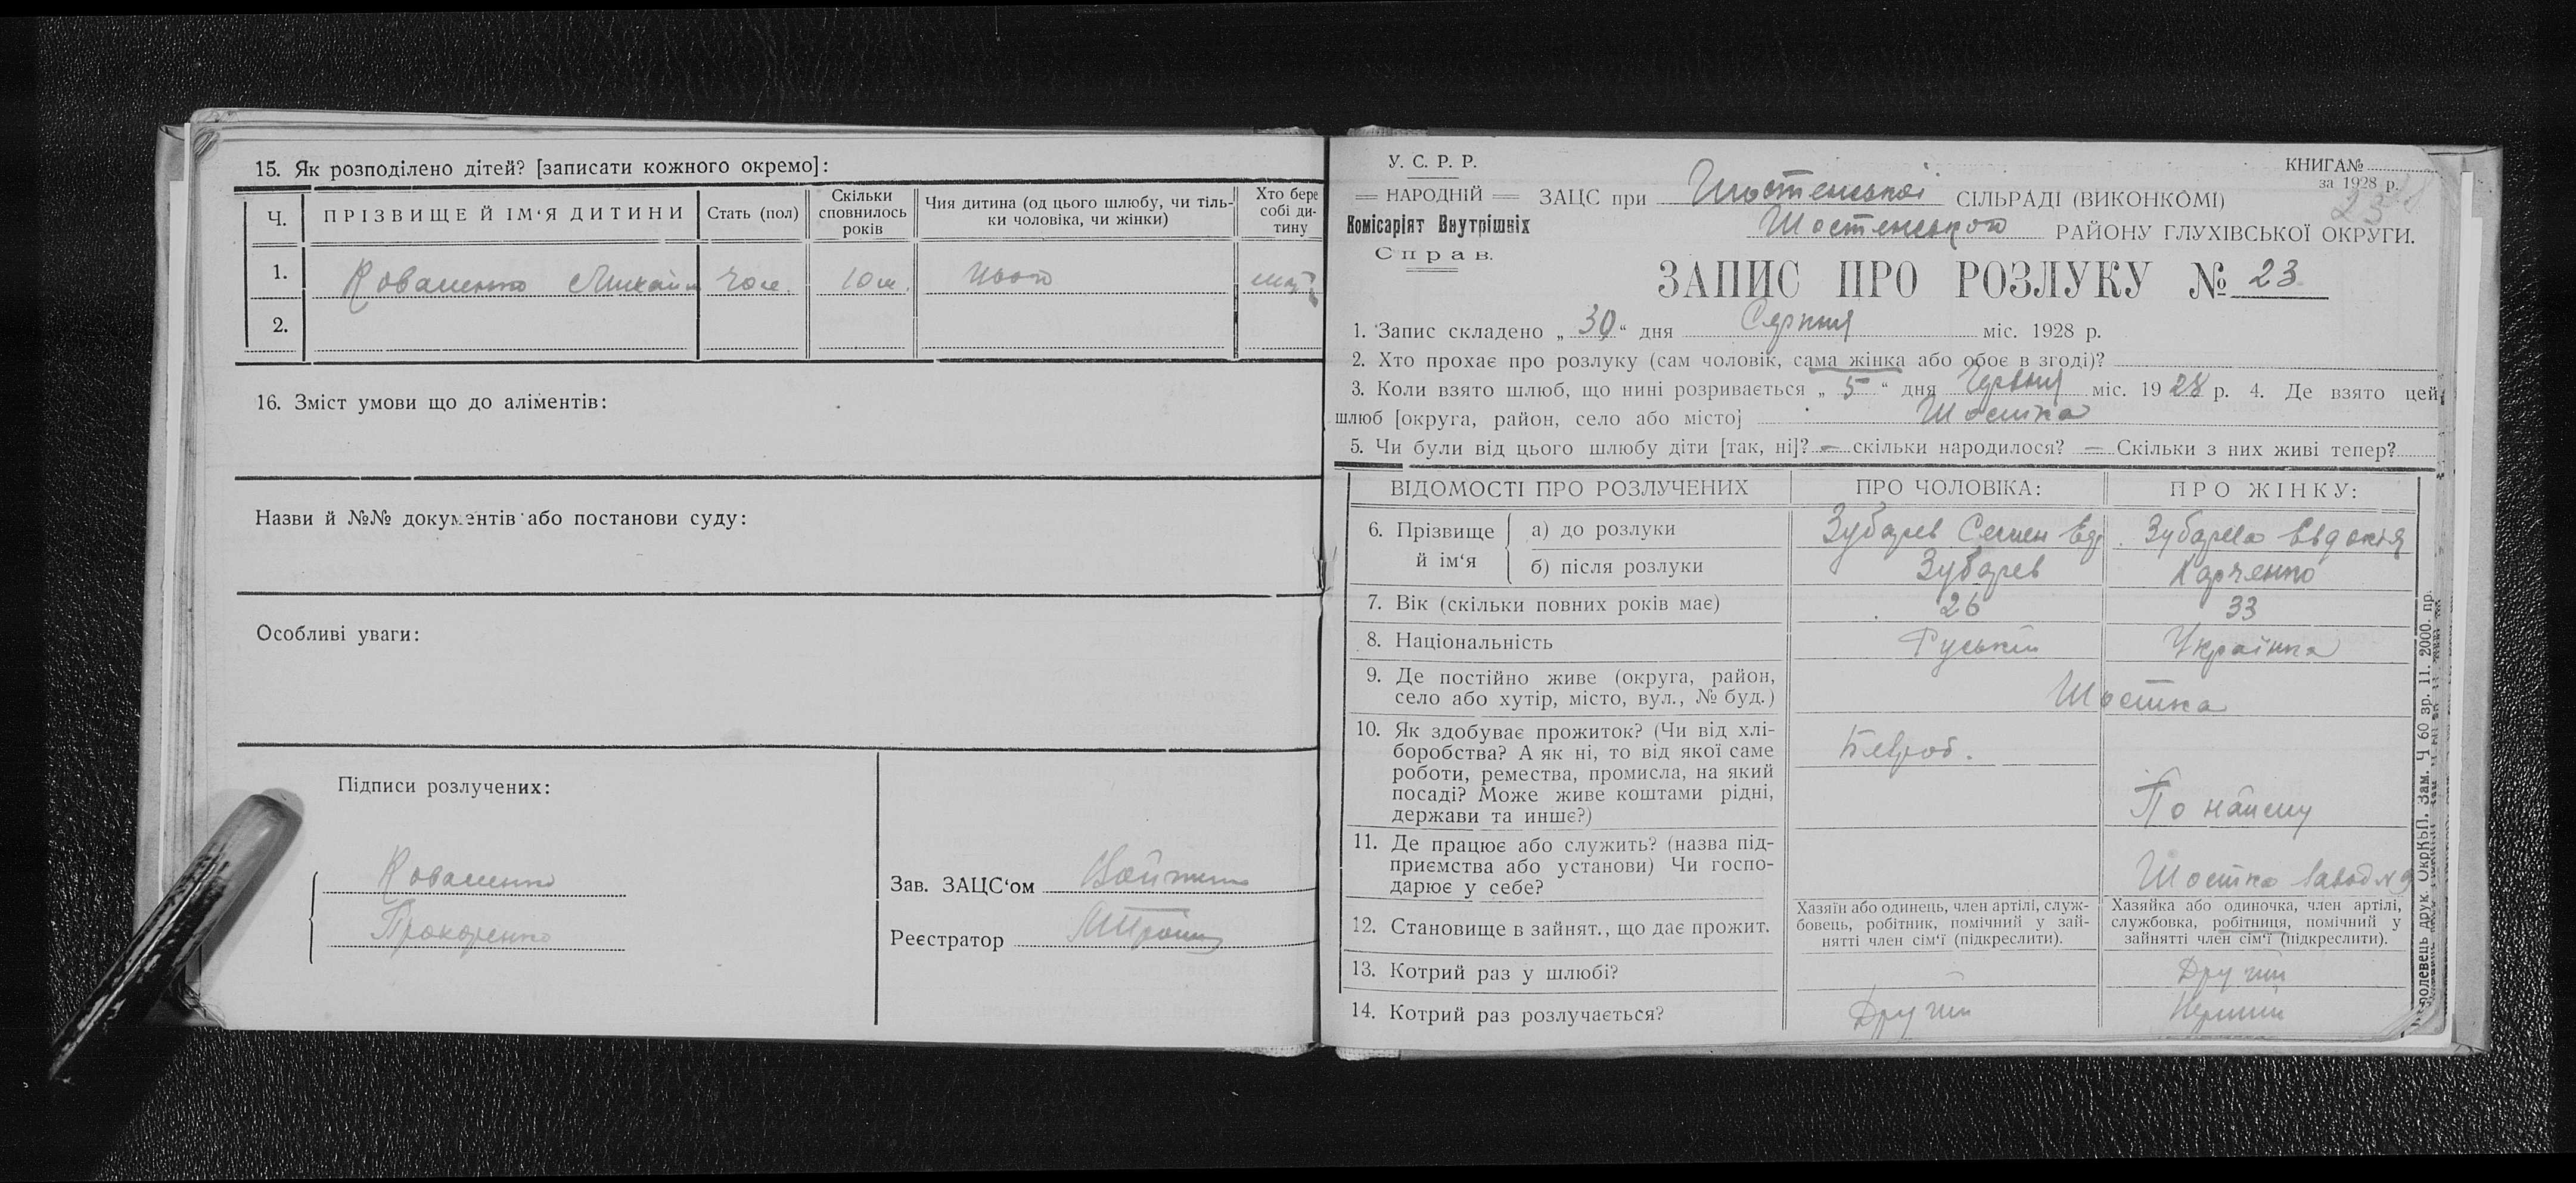 15. Як розподілено дітей? [записати кожного окремо]:
Ч. ПРІЗВИЩЕ Й ІМ‘Я ДИТИНИ Стать (пол) Скільки сповнилось років Чия дитина (од цього шлюбу, чи тіль-ки чоловіка, чи жінки) Хто бере собі ди-тину
1. Коваленко Михайл чол. 10 м. цього
2.
16. Зміст умови що до аліментів:
Назви й №№ документів або постанови суду:
Особливі уваги:
Підписи розлучених:
Коваленко
Прокоренко
Зав. ЗАЦС‘ом
Реєстратор
У. С. Р. Р.
НАРОДНІЙ
Комісаріят Внутрішніх
Справ.
КНИГА №
за 1928 р.
23
ЗАЦС при Шостенській СІЛЬРАДІ (ВИКОНКОМІ)
Шостенського РАЙОНУ ГЛУХІВСЬКОЇ ОКРУГИ.
ЗАПИС ПРО РОЗЛУКУ № 23
1. Запис складено „ 30 “ дня Серпня міс. 1928 р.
2. Хто прохає про розлуку (сам чоловік, сама жінка або обоє в згоді)?
3. Коли взято шлюб, що нині розривається „ 5 “ дня Червня міс. 19 28 р. 4. Де взято цей
шлюб [округа, район, село або місто] Шостка
5. Чи були від цього шлюбу діти [так, ні]? — скільки народилося? — Скільки з них живі тепер?
ВІДОМОСТІ ПРО РОЗЛУЧЕНИХ ПРО ЧОЛОВІКА: ПРО ЖІНКУ:
6. Прізвище й ім‘я
а) до розлуки Зубарев Семен Зубарева Євдокія
б) після розлуки Зубарев Харченко
7. Вік (скільки повних років має) 26 33
8. Національність Руський Українка
9. Де постійно живе (округа, район,
село або хутір, місто, вул., № буд.) Шостка
10. Як здобуває прожиток? (Чи від хлі-
боробства? А як ні, то від якої саме Безроб.
роботи, ремества, промисла, на який
посаді? Може живе коштами рідні,
держави та инше?) По найму
11. Де працює або служить? (назва під-
приємства або установи) Чи госпо-
дарює у себе? Шостка завод № 9
12. Становище в зайнят., що дає прожит.
Хазяїн або одинець, член артілі, служ-
бовець, робітник, помічний у зай-
нятті член сім‘ї (підкреслити).
Хазяйка або одиночка, член артілі,
службовка, робітниця, помічний у
зайнятті член сім‘ї (підкреслити).
13. Котрий раз у шлюбі? Другий
14. Котрий раз розлучається? Другий Перший
друк. ОкрКЬП. Зам. Ч 60 зр. 11. 2000. пр.